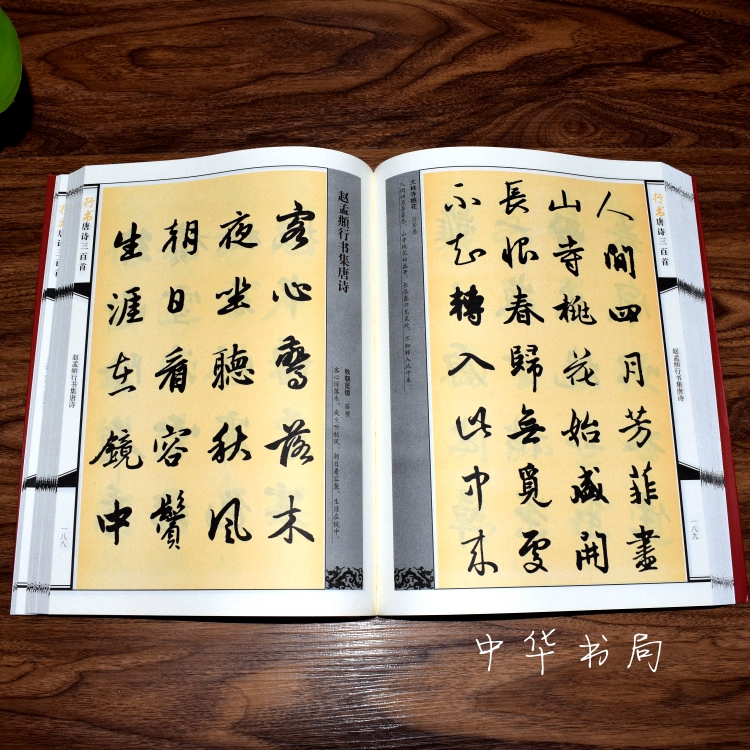 行书唐诗三百首
赵孟頫行书集唐诗
一八八
赵孟頫行书集唐诗
秋朝览镜 薛稷
客心惊落木，夜坐听秋风。朝日看容鬓，生涯在镜中。
客心驚落木
夜坐聽秋風
朝日看容鬢
生涯在鏡中
行书唐诗三百首
赵孟頫行书集唐诗
一八九
大林寺桃花 白居易
人间四月芳菲尽，山寺桃花始盛开。长恨春归无觅处，不知转入此中来。
人間四月芳菲盡
山寺桃花始盛開
長恨春歸無覓處
不知轉入此中來
中华书局